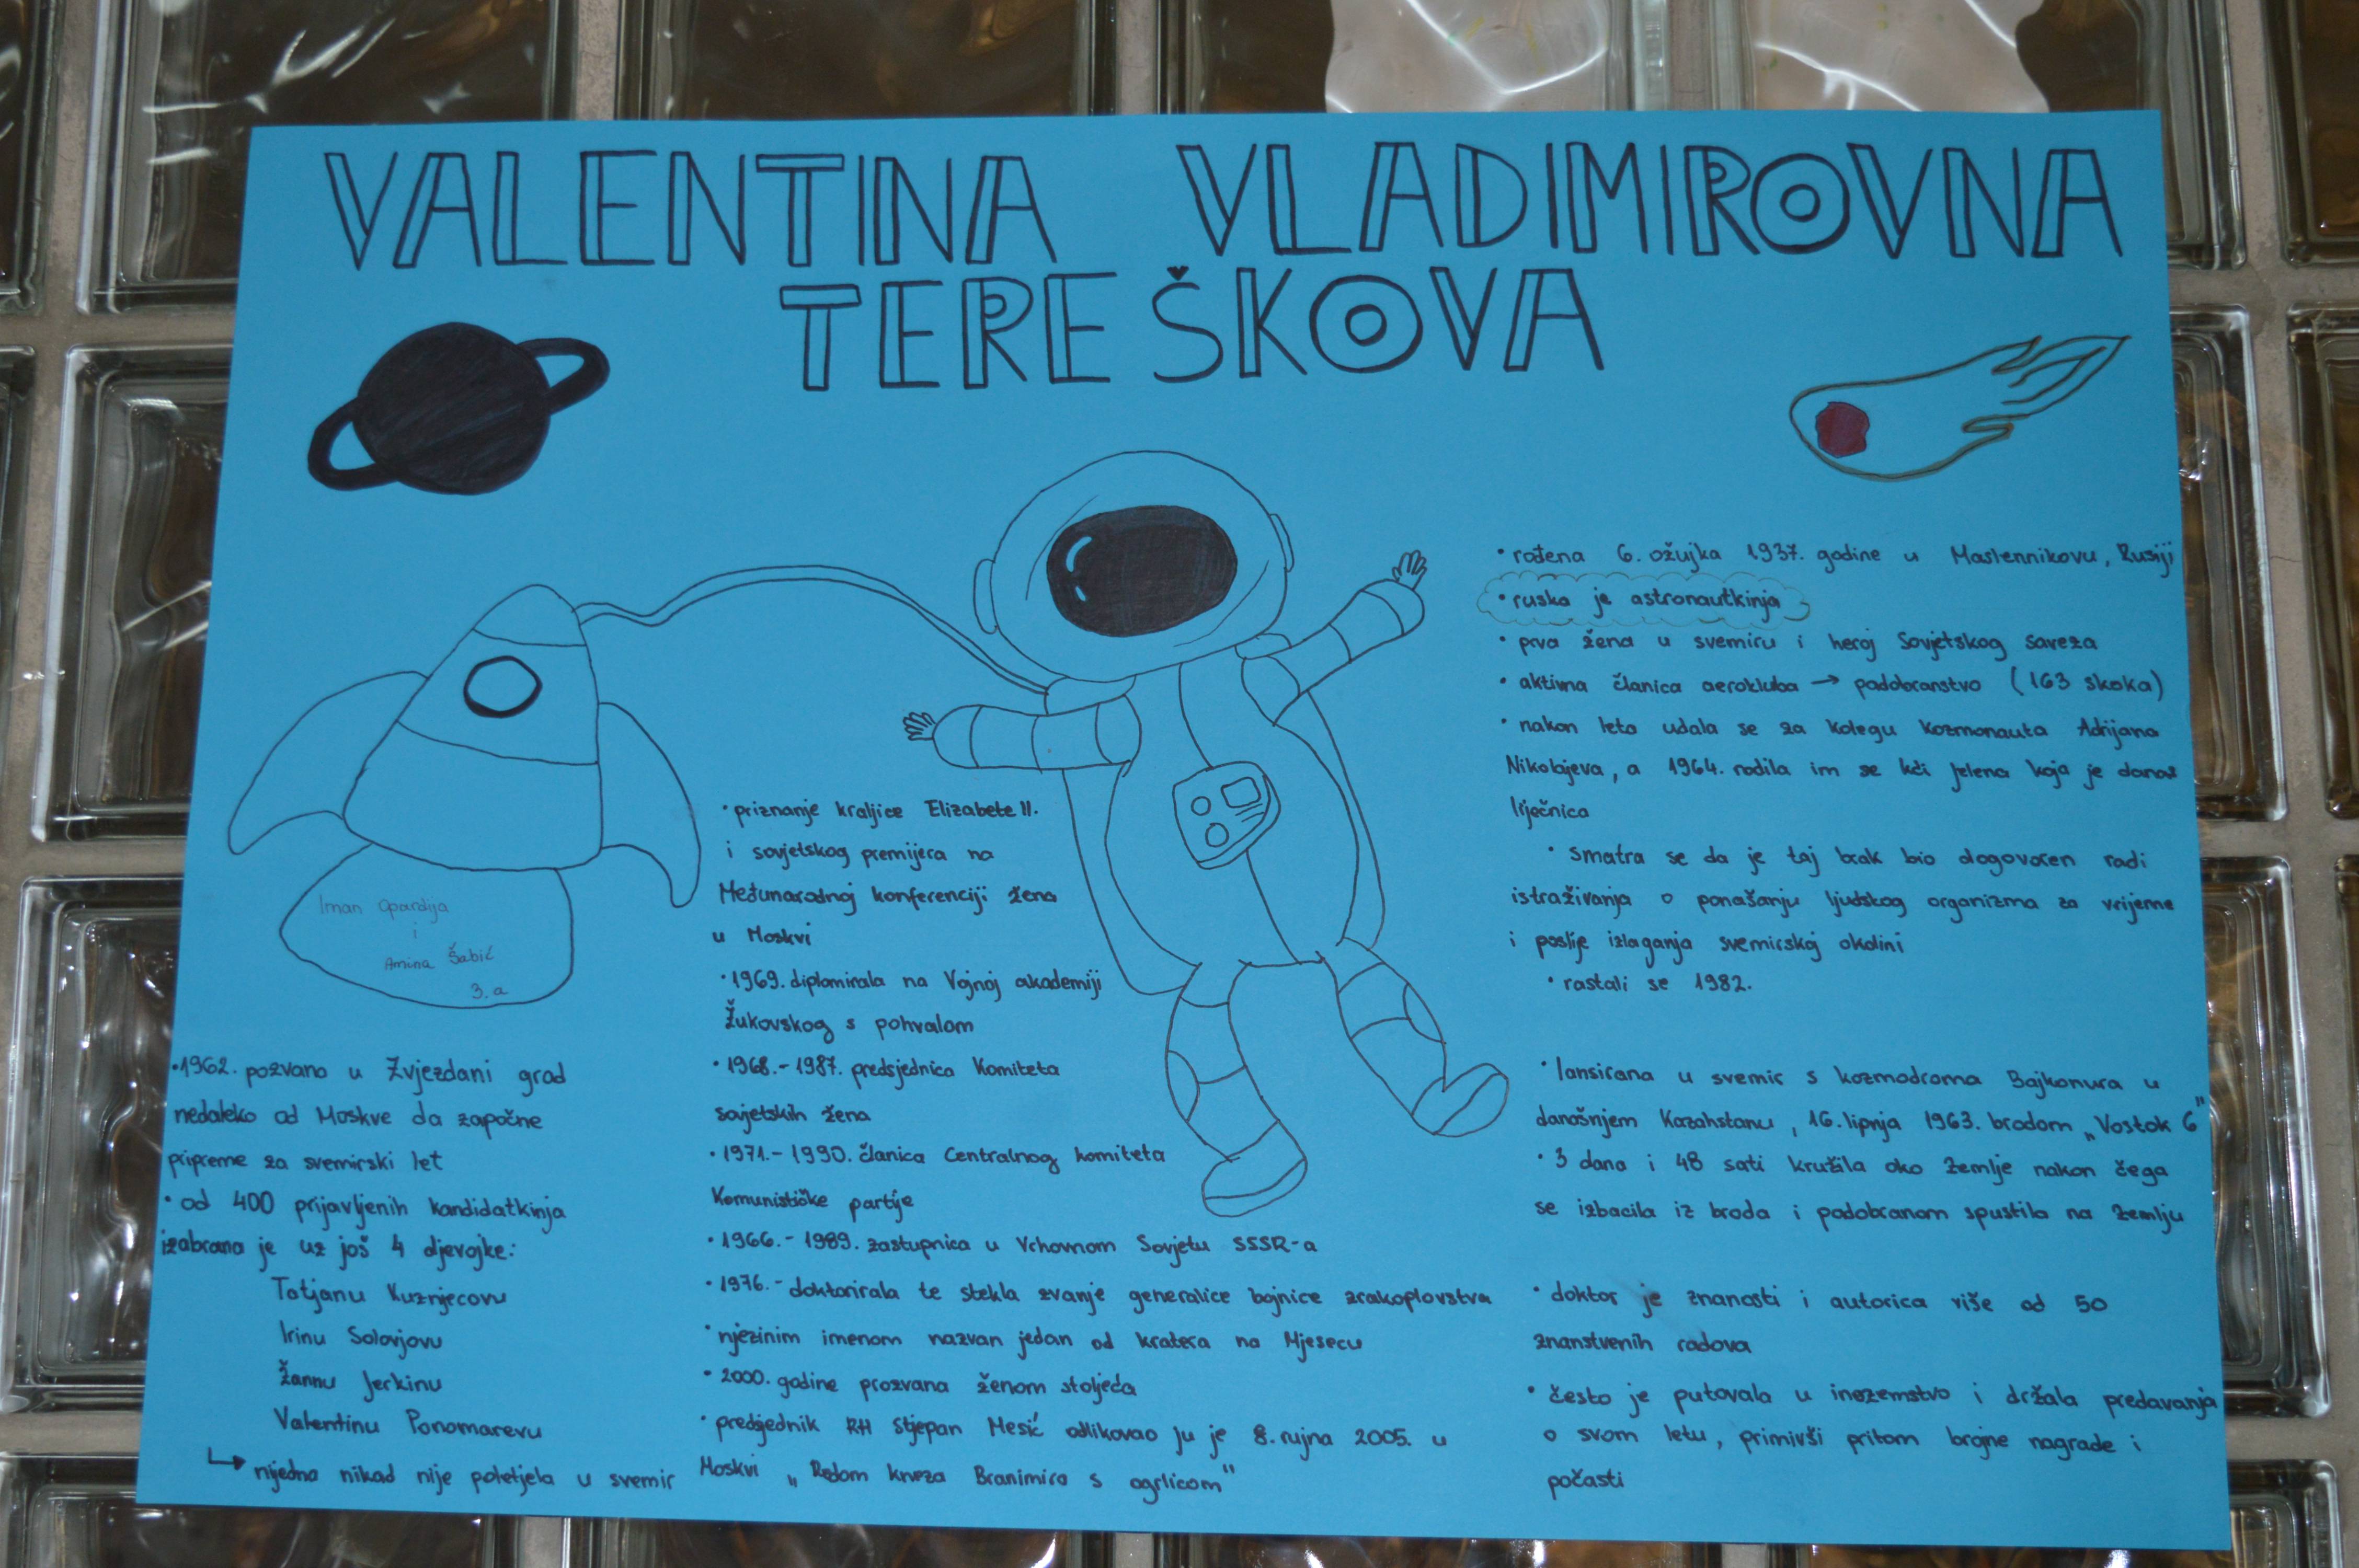 VALENTINA VLADIMIROVNA
TEREŠKOVA
Iman Opardija
i
Amina Šabić
3.a
•1962. pozvana u Zvjezdani grad
nedaleko od Moskve da započne
pripreme za svemirski let
• od 400 prijavljenih kandidatkinja
izabrana je uz još 4 djevojke:
Tatjanu Kuznjecovu
Irinu Solovjovu
Žannu Jerkinu
Valentinu Ponomarevu
↳ nijedna nikad nije poletjela u svemir
• priznanje kraljice Elizabete II.
i sovjetskog premijera na
Međunarodnoj konferenciji žena
u Moskvi
•1969. diplomirala na Vojnoj akademiji
Žukovskog s pohvalom
• 1968.-1987. predsjednica Komiteta
sovjetskih žena
• 1971.-1990. članica Centralnog komiteta
Komunističke partije
• 1966.-1989. zastupnica u Vrhovnom Sovjetu SSSR-a
• 1976.- doktorirala te stekla zvanje generalice bojnice zrakoplovstva
• njezinim imenom nazvan jedan od kratera na Mjesecu
• 2000. godine prozvana ženom stoljeća
• predsjednik RH Stjepan Mesić odlikovao ju je 8. rujna 2005. u
Moskvi „Redom kneza Branimira s ogrlicom"
• rođena 6. ožujka 1937. godine u Maslennikovu, Rusiji
• ruska je astronautkinja
• prva žena u svemiru i heroj Sovjetskog saveza
• aktivna članica aerokluba → padobranstvo (163 skoka)
• nakon leta udala se za kolegu kozmonauta Adrijana
Nikolajeva, a 1964. rodila im se kći Jelena koja je danas
liječnica
• smatra se da je taj brak bio dogovoren radi
istraživanja o ponašanju ljudskog organizma za vrijeme
i poslije izlaganja svemirskoj okolini
• rastali se 1982.
• lansirana u svemir s kozmodroma Bajkonura u
današnjem Kazahstanu, 16. lipnja 1963. brodom „Vostok 6"
• 3 dana i 48 sati kružila oko Zemlje nakon čega
se izbacila iz broda i padobranom spustila na Zemlju
• doktor je znanosti i autorica više od 50
znanstvenih radova
• često je putovala u inozemstvo i držala predavanja
o svom letu, primivši pritom brojne nagrade i
počasti